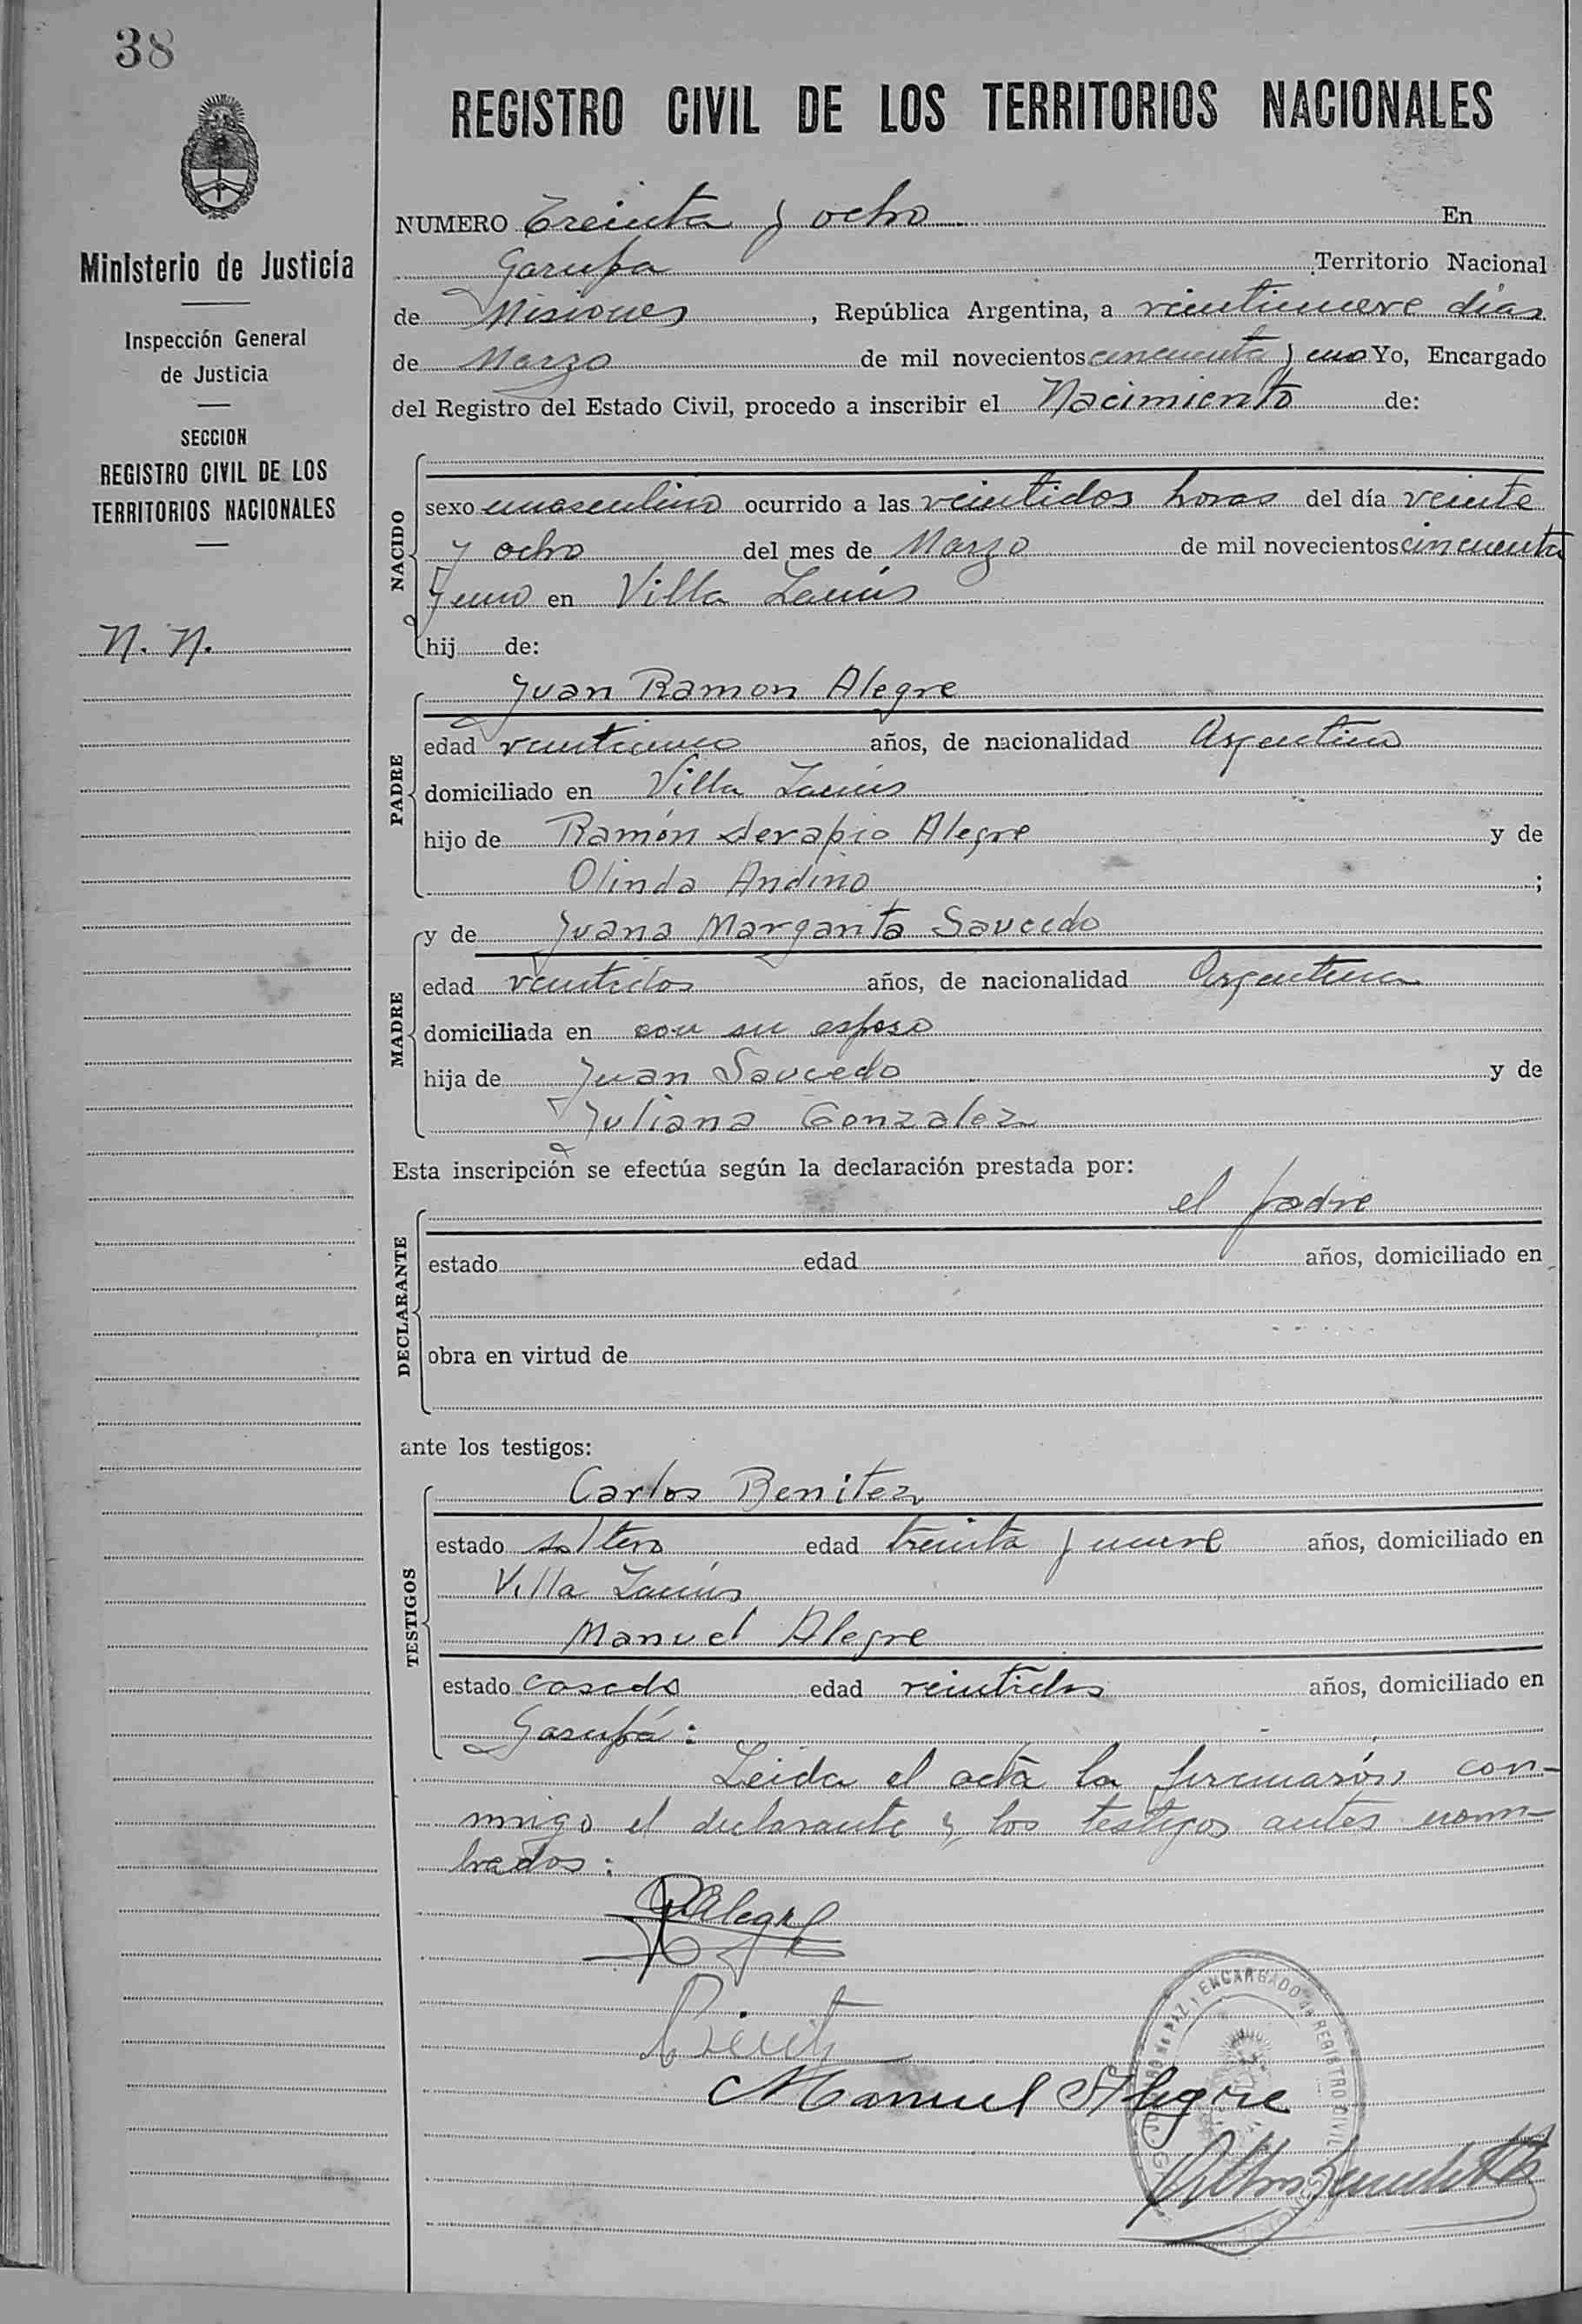 38
Ministerio de Justicia
Inspección General
de Justicia
SECCION
REGISTRO CIVIL DE LOS
TERRITORIOS NACIONALES
N. N.
REGISTRO CIVIL DE LOS TERRITORIOS NACIONALES
NUMERO Treinta y ocho En
Garupa Territorio Nacional
de Misiones, República Argentina, a veintinueve días
de Marzo de mil novecientos cincuenta y uno Yo, Encargado
del Registro del Estado Civil, procedo a inscribir el Nacimiento de:
NACIDO
sexo masculino ocurrido a las veintidos horas del día veinte
y ocho del mes de Marzo de mil novecientos cincuenta
y uno en Villa Lanús
hij de:
PADRE
Juan Ramon Alegre
edad años, de nacionalidad Argentino
domiciliado en Villa Lanús
hijo de Ramón Serapio Alegre y de
Olinda Andino ;
MADRE
y de Juana Margarita Saucedo
edad veintidos años, de nacionalidad Argentina
domiciliada en con su esposo
hija de Juan Saucedo y de
Juliana Gonzalez
Esta inscripción se efectúa según la declaración prestada por:
DECLARANTE
el padre
estado edad años, domiciliado en
obra en virtud de
ante los testigos:
TESTIGOS
Carlos Benitez
estado soltero edad treinta y nueve años, domiciliado en
Villa Lanús
Manuel Alegre
estado casado edad veintidos años, domiciliado en
Garupá:
Leida el acta la firmarón con-
migo el declarante y los testigos antes nom-
brados:
Alegre
Manuel Alegre
ENCARGADO de REGISTRO CIVIL